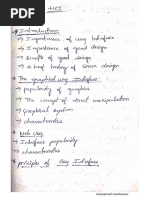 HCI
Introduction:
→ Importance of user Interface
→ Importance of good design
→ Benefits of good design
→ A brief history of screen design
The graphical user Interface:
→ popularity of graphics
→ The concept of direct manipulation
→ Graphical system
→ characteristics
Web user
→ Interface popularity
→ characteristics
→ principle of User Interface.